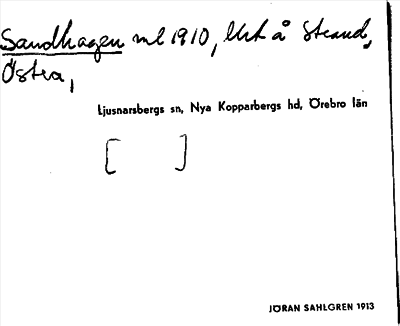 Sandhagen ml 1910, Urk å Strand,
Östra,
Ljusnarsbergs sn, Nya Kopparbergs hd, Örebro län
[ ]
JÖRAN SAHLGREN 1913